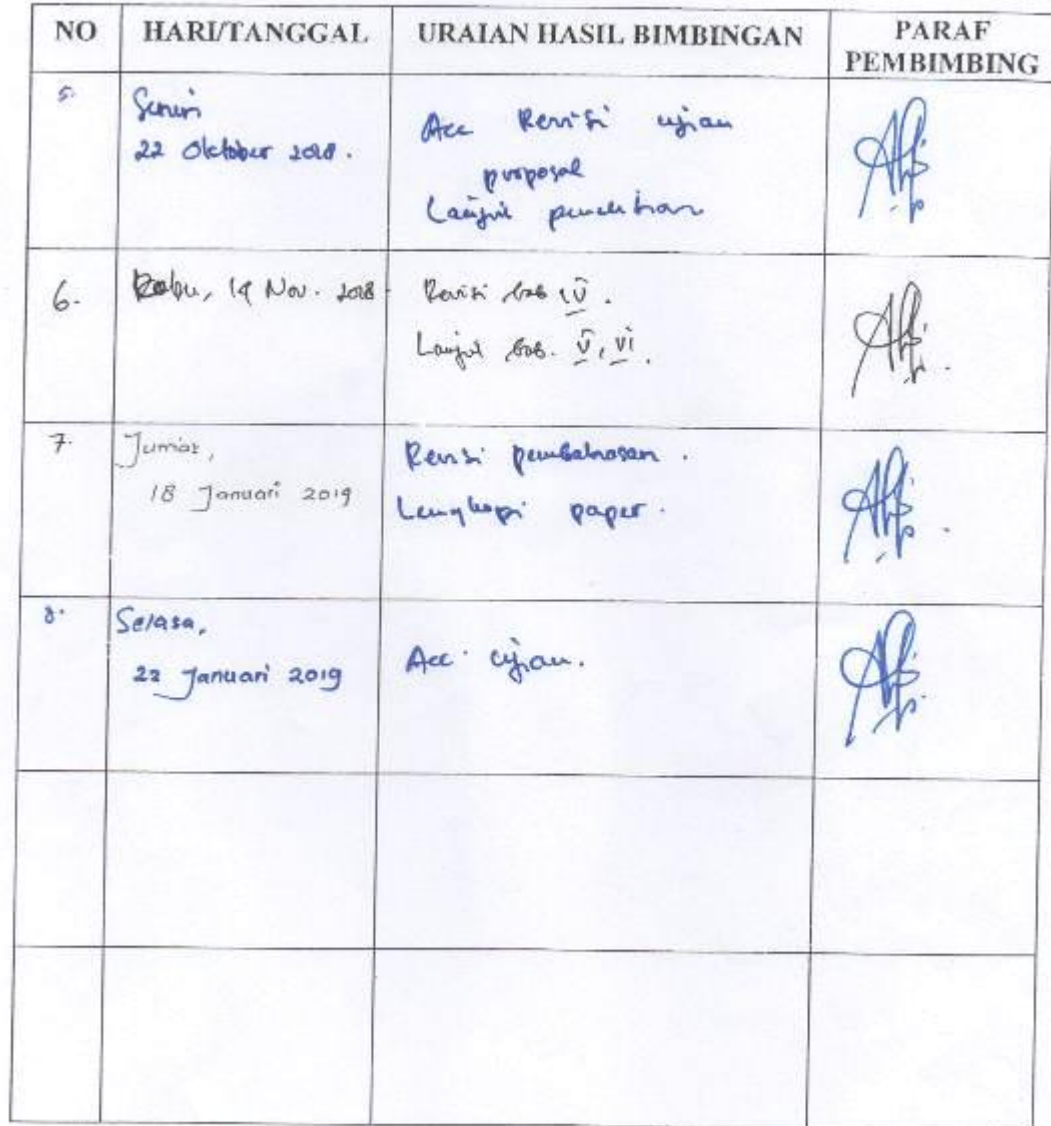 NO HARI/TANGGAL URAIAN HASIL BIMBINGAN PARAF PEMBIMBING
5. Senin
22 Oktober 2018.
Acc Revisi ujian
proposal
Lanjut penelitian
6. Rabu, 14 Nov. 2018
Revisi bab IV.
Lanjut bab. V, VI.
7. Jumat,
18 Januari 2019
Revisi pembahasan.
Lengkapi paper.
8. Selasa,
22 Januari 2019
Acc ujian.